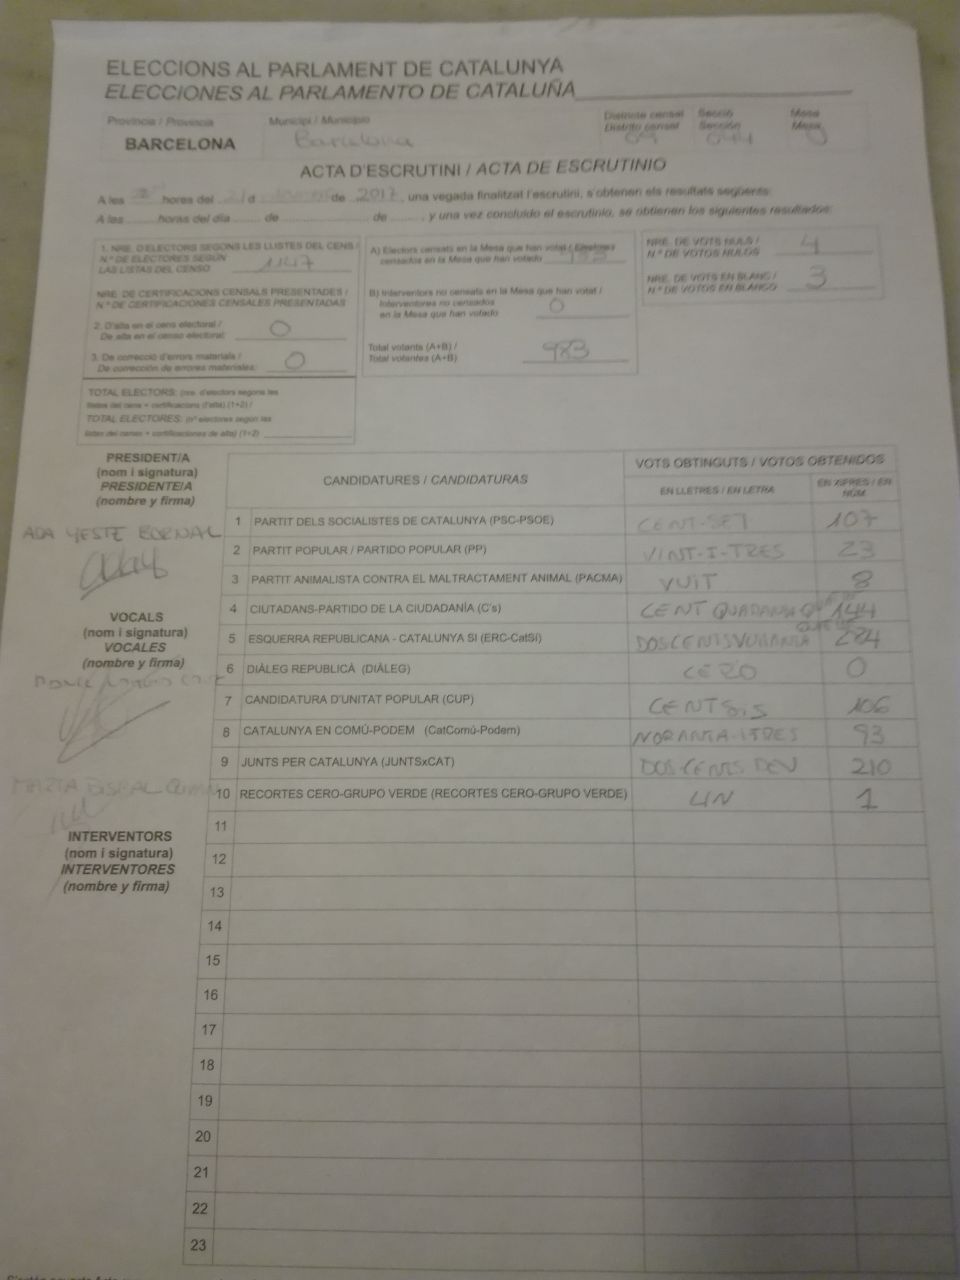 ELECCIONS AL PARLAMENT DE CATALUNYA
ELECCIONES AL PARLAMENTO DE CATALUÑA
Província / Provincia
Municipi / Municipio
Districte censal
Distrito censal
Secció
Sección
Mesa
Mesa
BARCELONA
Barcelona
09
044
U
ACTA D'ESCRUTINI / ACTA DE ESCRUTINIO
A les hores del d de 2017, una vegada finalitzat l'escrutini, s'obtenen els resultats següents:
A las horas del día de de y una vez concluido el escrutinio, se obtienen los siguientes resultados:
1. NRE. D'ELECTORS SEGONS LES LLISTES DEL CENS /
N.º DE ELECTORES SEGÚN
LAS LISTAS DEL CENSO 1147
NRE. DE CERTIFICACIONS CENSALS PRESENTADES /
N.º DE CERTIFICACIONES CENSALES PRESENTADAS
2. D'alta en el cens electoral /
De alta en el censo electoral: 0
3. De correcció d'errors materials /
De corrección de errores materiales: 0
TOTAL ELECTORS: (nre. d'electors segons les
llistes del cens + certificacions d'alta) (1+2) /
TOTAL ELECTORES: (nº electores según las
listas del censo + certificaciones de alta) (1+2)
A) Electors censats en la Mesa que han votat / Electores
censados en la Mesa que han votado 983
B) Interventors no censats en la Mesa que han votat /
Interventores no censados
en la Mesa que han votado 0
Total votants (A+B) /
Total votantes (A+B) 983
NRE. DE VOTS NULS /
N.º DE VOTOS NULOS 4
NRE. DE VOTS EN BLANC /
N.º DE VOTOS EN BLANCO 3
PRESIDENT/A
(nom i signatura)
PRESIDENTE/A
(nombre y firma)
ADA YESTE BERNAL
VOCALS
(nom i signatura)
VOCALES
(nombre y firma)
INTERVENTORS
(nom i signatura)
INTERVENTORES
(nombre y firma)
CANDIDATURES / CANDIDATURAS
VOTS OBTINGUTS / VOTOS OBTENIDOS
EN LLETRES / EN LETRA
EN XIFRES / EN NÚM.
1 PARTIT DELS SOCIALISTES DE CATALUNYA (PSC-PSOE) CENT-SET 107
2 PARTIT POPULAR / PARTIDO POPULAR (PP) VINT-I-TRES 23
3 PARTIT ANIMALISTA CONTRA EL MALTRACTAMENT ANIMAL (PACMA) VUIT 8
4 CIUTADANS-PARTIDO DE LA CIUDADANÍA (C's) CENT QUARANTA QUATRE 144
5 ESQUERRA REPUBLICANA - CATALUNYA SÍ (ERC-CatSí) DOSCENTS VUITANTA QUATRE 284
6 DIÀLEG REPUBLICÀ (DIÀLEG) CERO 0
7 CANDIDATURA D'UNITAT POPULAR (CUP) CENT SIS 106
8 CATALUNYA EN COMÚ-PODEM (CatComú-Podem) NORANTA-ITRES 93
9 JUNTS PER CATALUNYA (JUNTSxCAT) DOSCENTS DEU 210
10 RECORTES CERO-GRUPO VERDE (RECORTES CERO-GRUPO VERDE) UN 1
11
12
13
14
15
16
17
18
19
20
21
22
23